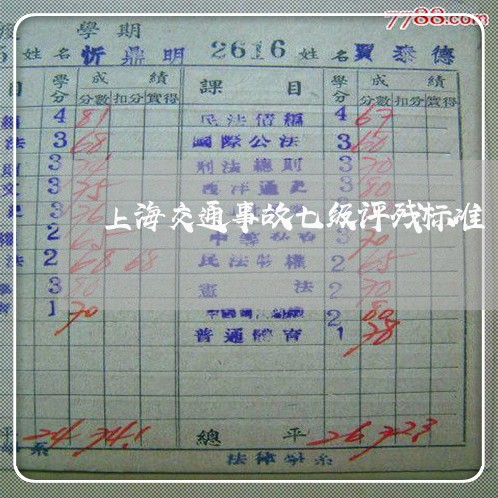 7788.com
學期
姓名 忻鼎明 2616 姓名 賈泰德
目 學分 成績 課目 學分 成績
分數 扣分 實得 分數 扣分 實得
4 81 民法債編 4 67
法 3 68 國際公法 3 60
3 刑法總則 3 70
3 75 西洋通史 3 80
上海交通事故七级评残标准
2 65 3 70
法 2 68 68 民法物權 2 65
3 80 憲法 2 70
育 1 70 2 80
普通體育 1 78
平 24 74.1 總平 26 72.3
系 法律學系